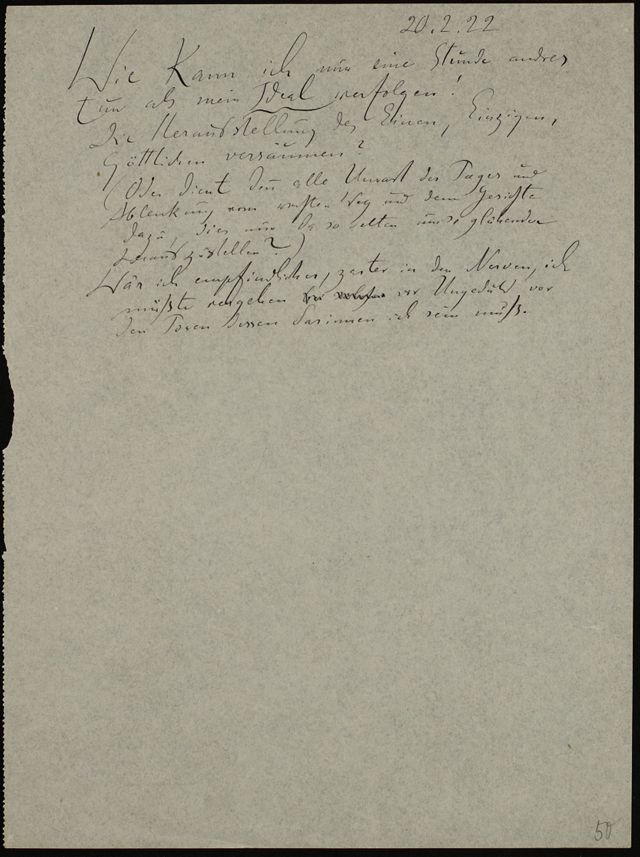 20.2.22
Wie kann ich nur eine Stunde andres
tun als mein Ideal verfolgen!
Die Herausstellung des Einen, Einzigen,
Göttlichen versäumen?
(Oder dient denn alle Unrast des Tages und
Ablenkung vom Weg und dem Gesichte
dazu, dies nur so selten umso glühender
herauszustellen?)
Wär ich empfindlicher, zarter in den Nerven, ich
müsste vergehen vor Ungeduld vor
den Toren dessen darinnen ich sein muß.
50